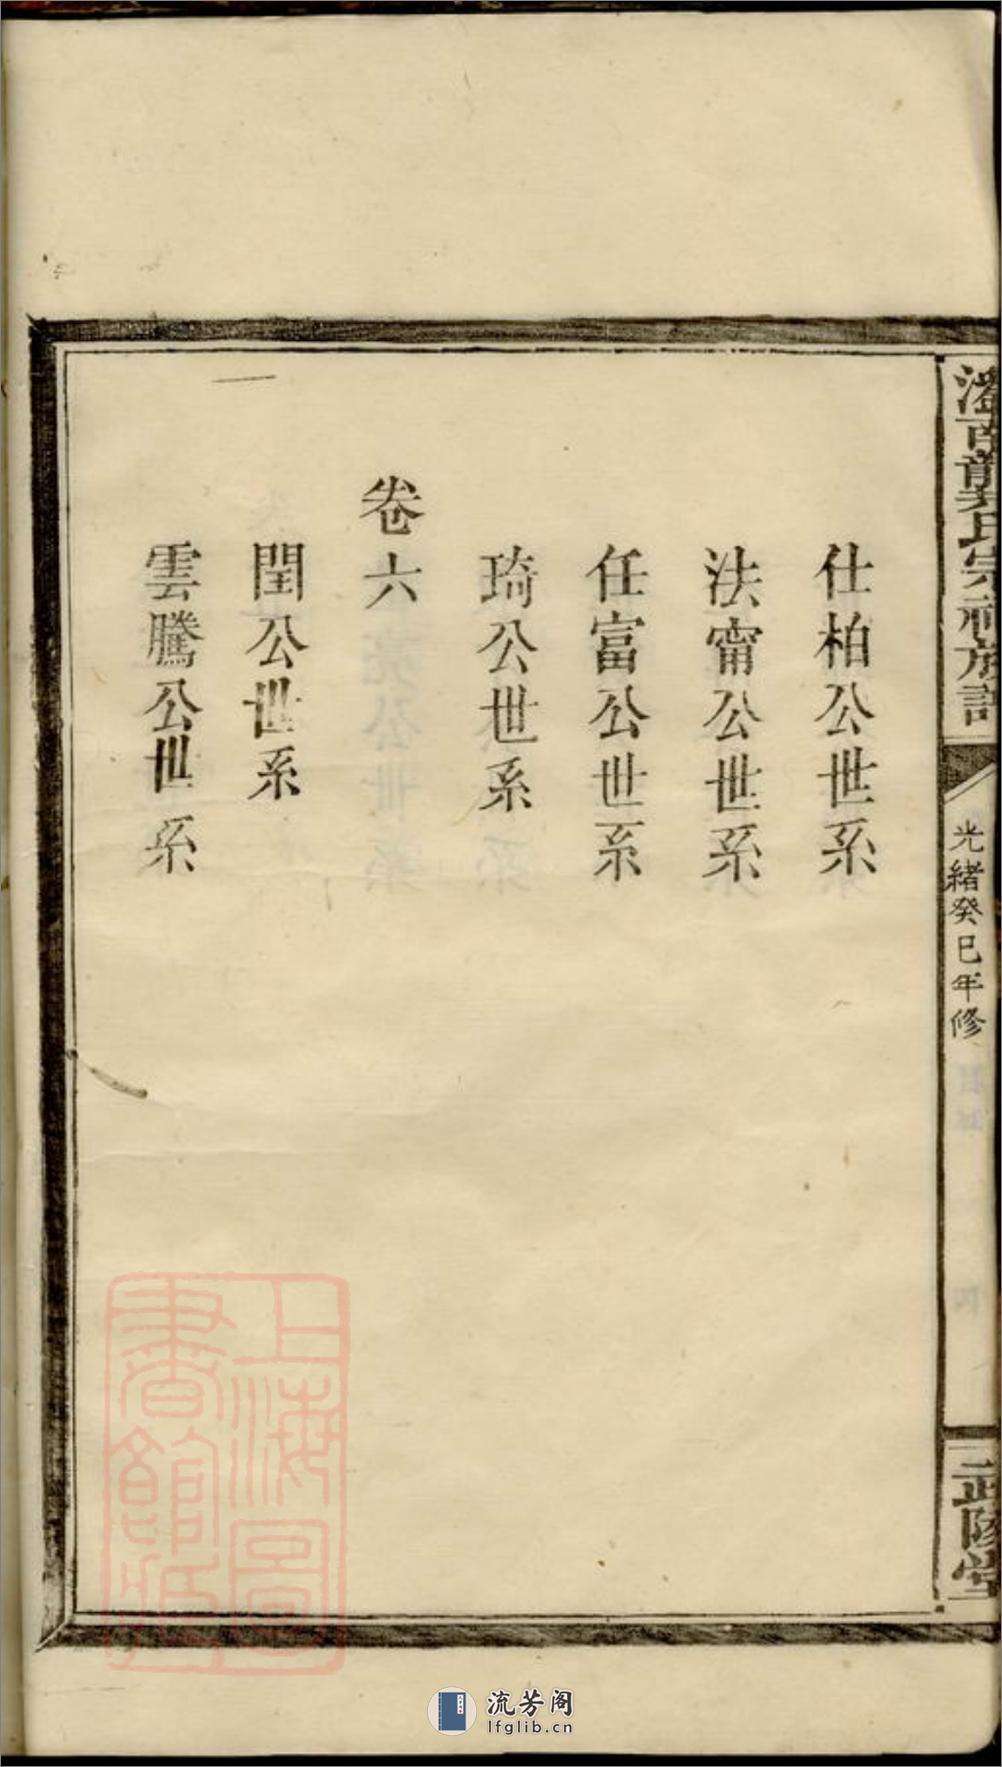 仕柏公世系
法甯公世系
任富公世系
琦公世系
卷六
閏公世系
雲騰公世系
龔氏宗祠族譜
光緒癸巳年修
目錄
四
武陵堂
上海圖
書館藏
流芳阁
lfglib.cn